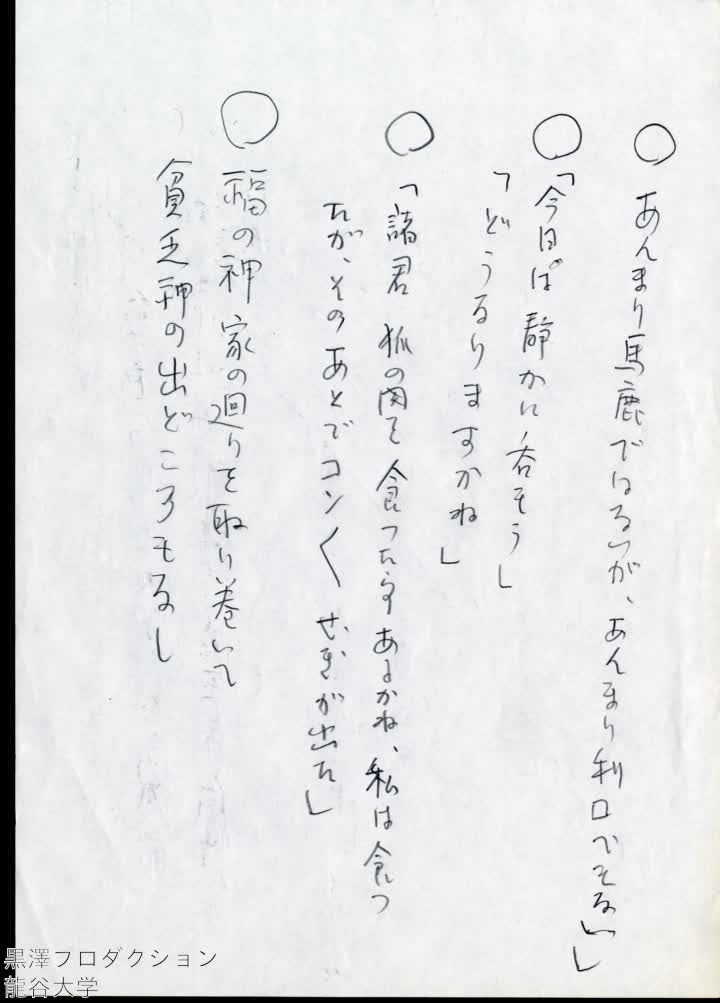 ○ あんまり馬鹿ではないが、あんまり利口でもない」
○ 「今日は静かに呑もう」
「どうなりますかね」
○ 「諸君 狐の肉を食つた事あるかね、私は食つ
たが、そのあとでコン〱せきが出た」
○ 福の神 家の廻りを取り巻いて
貧乏神の出どころもなし
黒澤プロダクション
龍谷大学